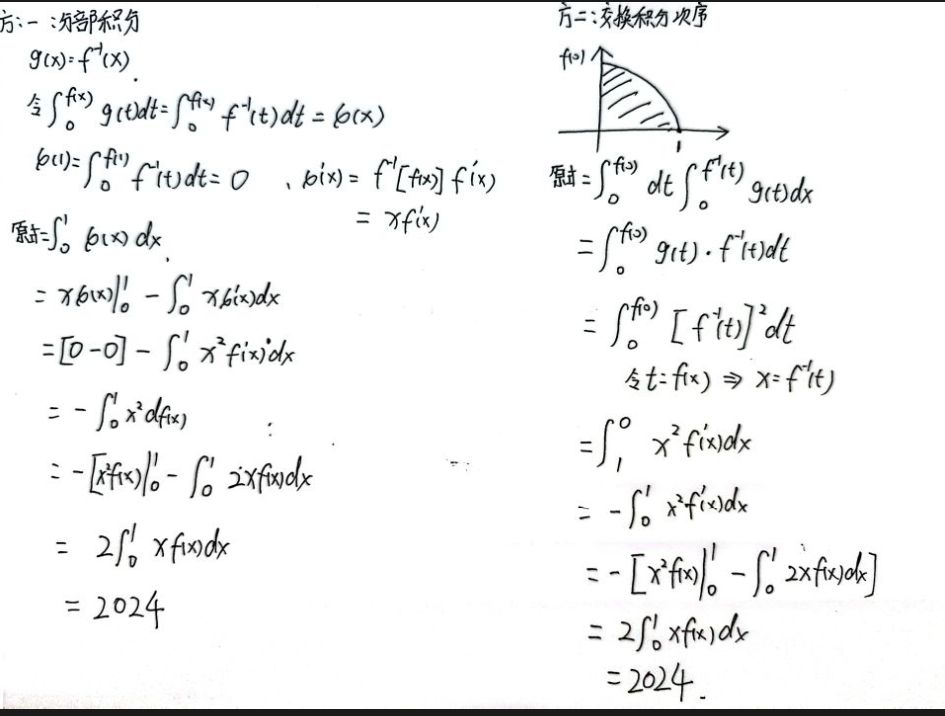 方:一:分部积分
g(x)=f⁻¹(x).
令∫₀^{f(x)} g(t)dt=∫₀^{f(x)} f⁻¹(t)dt=φ(x)
φ(1)=∫₀^{f(1)} f⁻¹(t)dt=0 、φ'(x)=f⁻¹[f(x)]f'(x)
=xf'(x)
原式=∫₀¹ φ(x)dx
=xφ(x)|₀¹-∫₀¹ xφ'(x)dx
=[0-0]-∫₀¹ x²f'(x)dx
=-∫₀¹x²df(x)
=-[x²f(x)|₀¹-∫₀¹ 2xf(x)dx
= 2∫₀¹ xf(x)dx
= 2024
方二:交换积分次序
f(0)
1
原式=∫₀^{f(0)} dt∫₀^{f⁻¹(t)} g(t)dx
=∫₀^{f(0)} g(t)·f⁻¹(t)dt
=∫₀^{f(0)} [f⁻¹(t)]²dt
令t=f(x)⇒x=f⁻¹(t)
=∫₁⁰ x²f'(x)dx
=-∫₀¹ x²f'(x)dx
=-[x²f(x)|₀¹-∫₀¹ 2xf(x)dx]
=2∫₀¹xf(x)dx
=2024.